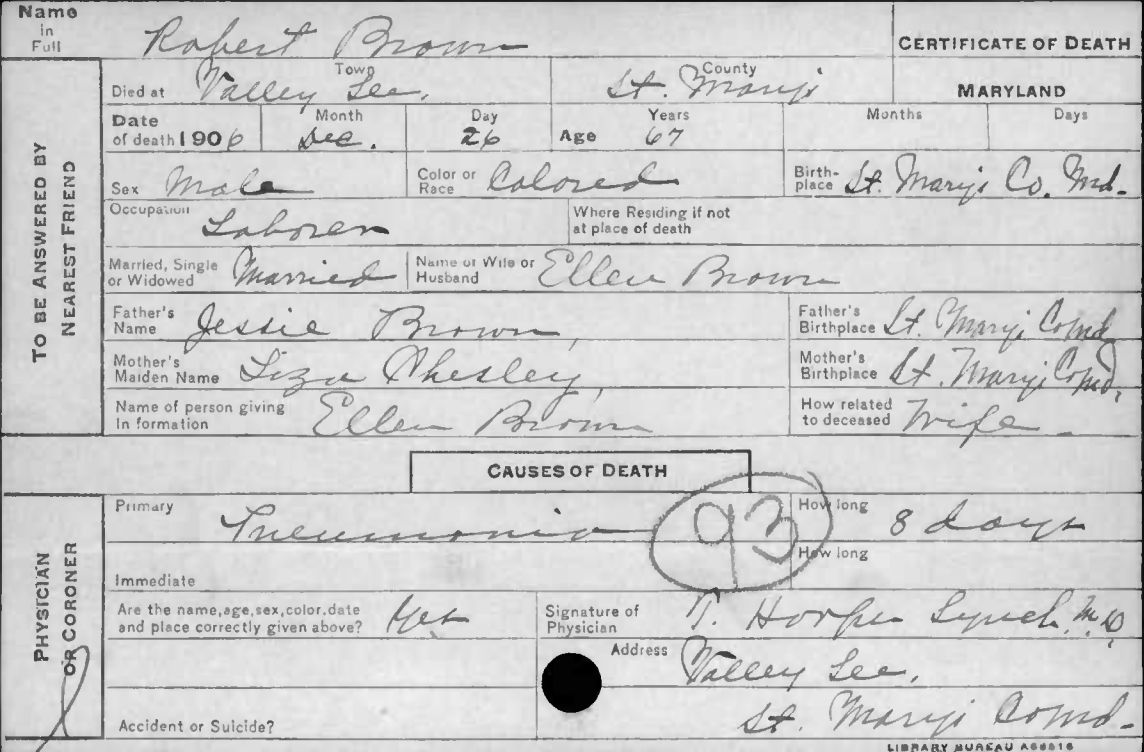 Name in Full Robert Brown
CERTIFICATE OF DEATH
TO BE ANSWERED BY NEAREST FRIEND
Died at Town Valley Lee, County St. Mary's MARYLAND
Date of death 1906 Month Dec. Day 26 Age Years 67 Months Days
Sex Male Color or Race Colored Birthplace St. Mary's Co. Md.
Occupation Laborer Where Residing if not at place of death
Married, Single or Widowed Married Name of Wife or Husband Ellen Brown
Father's Name Jessie Brown, Father's Birthplace St. Mary's Co Md
Mother's Maiden Name Liza Chesley, Mother's Birthplace St. Mary's Co Md,
Name of person giving In formation Ellen Brown How related to deceased Wife
CAUSES OF DEATH
PHYSICIAN OR CORONER
Primary Pneumonia 93 How long 8 days
Immediate How long
Are the name,age,sex,color,date and place correctly given above? Yes Signature of Physician T. Lynch M D,
Address Valley Lee,
Accident or Suicide? St. Mary's Co Md-
LIBRARY BUREAU